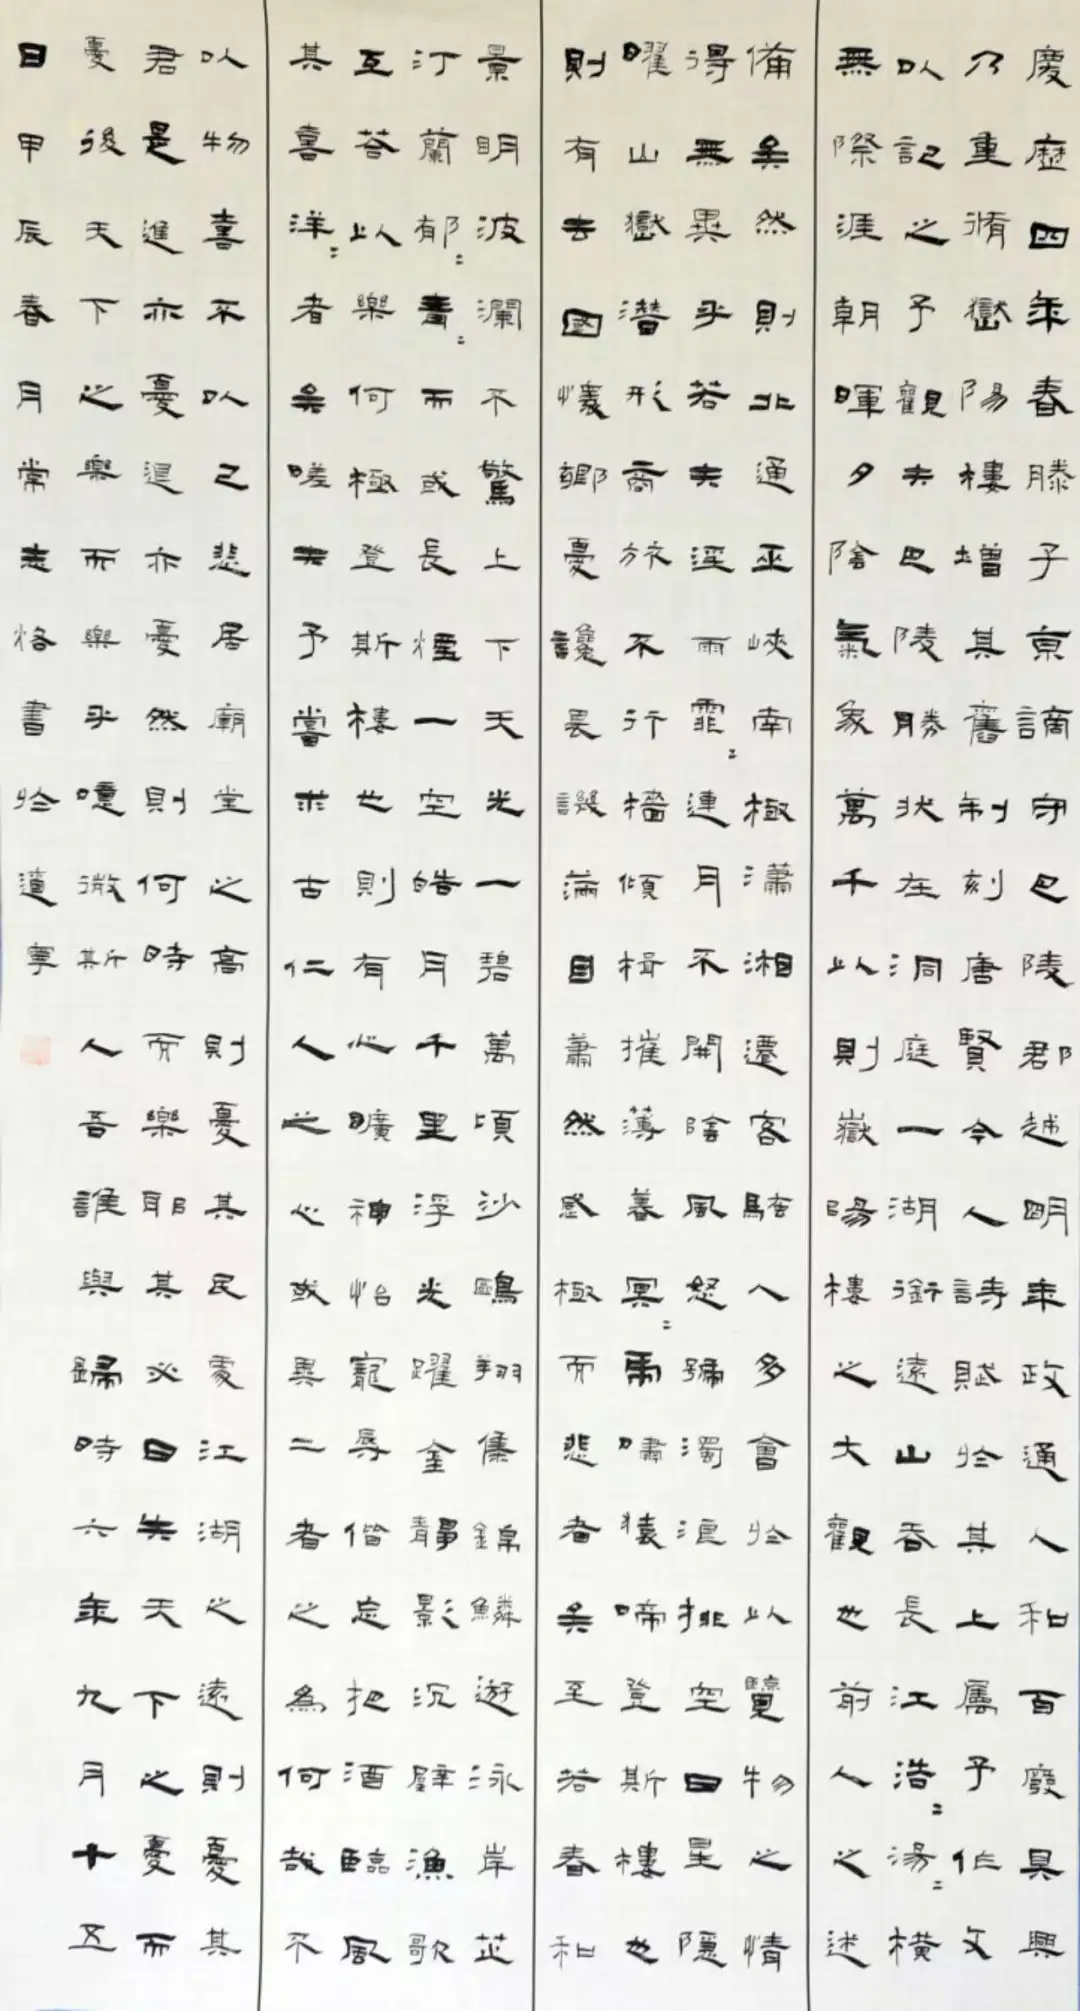 慶歷四年春滕子京謫守巴陵郡越明年政通人和百廢具興
乃重脩嶽陽樓增其舊制刻唐賢今人詩賦於其上屬予作文
以記之予觀夫巴陵勝狀在洞庭一湖銜遠山吞長江浩=湯=橫
無際涯朝暉夕陰氣象萬千以則嶽陽樓之大觀也前人之述
備矣然則北通巫峽南極瀟湘遷客騷人多會於以覽物之情
得無異乎若夫淫雨霏=連月不開陰風怒號濁浪排空日星隱
曜山嶽潛形商旅不行檣傾楫摧薄暮冥=虎嘯猿啼登斯樓也
則有去國懷鄉憂讒畏譏滿目蕭然感極而悲者矣至若春和
景明波瀾不驚上下天光一碧萬頃沙鷗翔集錦鱗遊泳岸芷
汀蘭郁=青=而或長煙一空皓月千里浮光躍金靜影沉壁漁歌
互荅以樂何極登斯樓也則有心曠神怡寵辱偕忘把酒臨風
其喜洋=者矣嗟夫予嘗求古仁人之心或異二者之為何哉不
以物喜不以己悲居廟堂之高則憂其民處江湖之遠則憂其
君是進亦憂退亦憂然則何時而樂耶其必曰先天下之憂而
憂後天下之樂而樂乎噫微斯人吾誰與歸時六年九月十五
日甲辰春月常志恪書於道寧